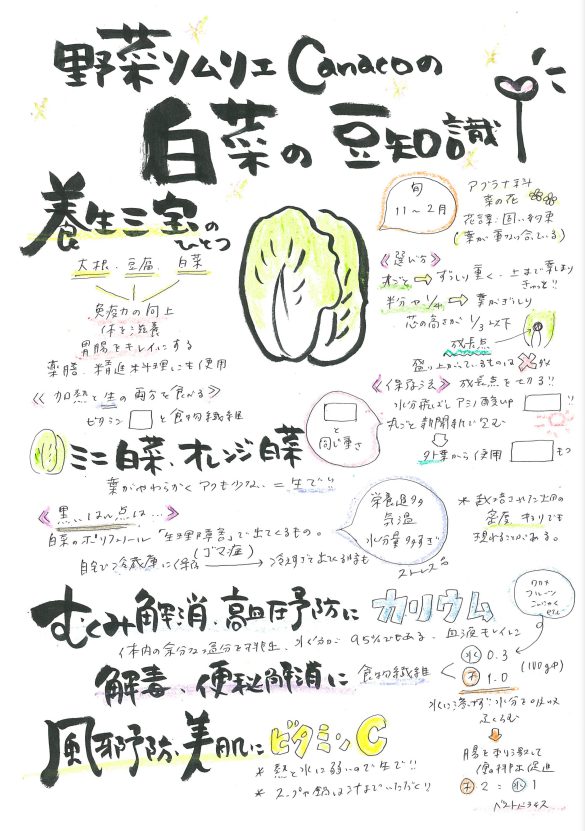 野菜ソムリエ Canacoの
白菜の豆知識
養生三宝の
ひとつ
大根、豆腐、白菜
免疫力の向上
体を滋養
胃腸をキレイにする
薬膳、精進料理にも使用
《加熱と生の両方を食べる》
ビタミン□と食物繊維
旬
11〜2月
アブラナ科
菜の花
花言葉:固い約束
(葉が重なり合っている)
《選び方》
まるごと ⇨ ずっしり重く、上まで葉しまり
きゅっと!!
半分や1/4 ⇨ 葉がぎっしり
芯の高さが1/3以下
成長点
盛り上がっているものは
《保存法》成長点を切る!!
水分飛ばしアミノ酸UP □!!
丸ごと新聞紙で包む
外葉から使用 □もつ
ミニ白菜、オレンジ白菜
□
と
同じ重さ
葉がやわらかくアクも少ない=生で!!
《黒い点は…》
白菜のポリフェノール「生理障害」で出てくるもの。
(ゴマ症)
自宅で冷蔵庫に保存 → 冷えすぎて出てくる時も
栄養過多
気温
水分量多すぎ
ストレス
*栽培された土田の
密度、キリでも
現れることがある。
むくみ解消、高血圧予防にカリウム
体内の余分な塩分を排出、水分が95%でもある、血液もキレイに
ワカメ
フルーツ
こんにゃく
etc
解毒 便秘解消に 食物繊維
水 0.3
不 1.0
(100g中)
水に溶けず水分を吸収
ふくらむ
腸を刺激して
便の排出促進
不 2 = 水 1
ベストバランス
風邪予防、美肌にビタミンC
*熱と水に弱いので生で!!
*スープや鍋は汁までいただく!!